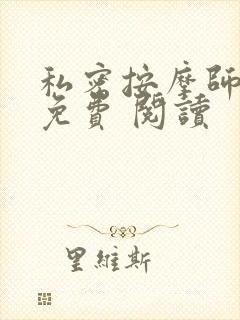 私密按摩師
免費 閱讀
里維斯